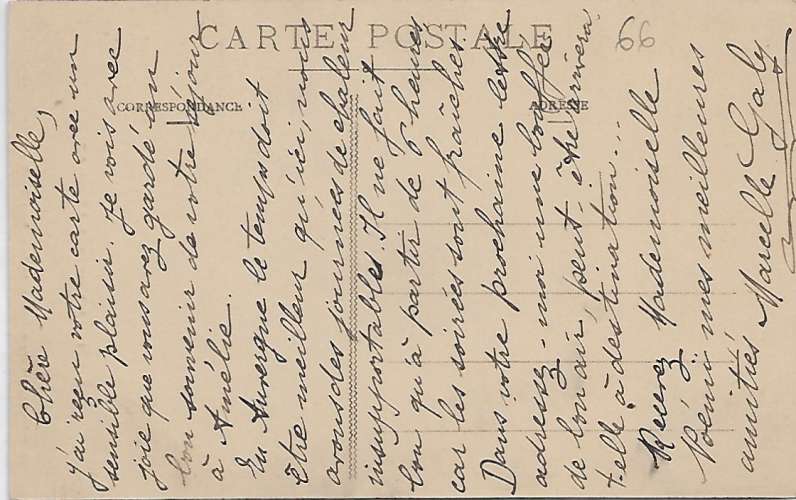 CARTE POSTALE
66
CORRESPONDANCE
ADRESSE
Chère Mademoiselle,
J'ai reçu votre carte avec un
sensible plaisir. Je vois avec
joie que vous avez gardé un
bon souvenir de votre séjour
à Amélie.
En Auvergne le temps doit
être meilleur qu'ici, nous
avons des journées de chaleur
insupportables. Il ne fait
bon qu'à partir de 6 heures
car les soirées sont fraîches.
Dans votre prochaine lettre
adressez-moi une bouffée
de bon air, peut-être arrivera
t-elle à destination...
Recevez Mademoiselle
Noémi mes meilleures
amitiés Marcelle Galy